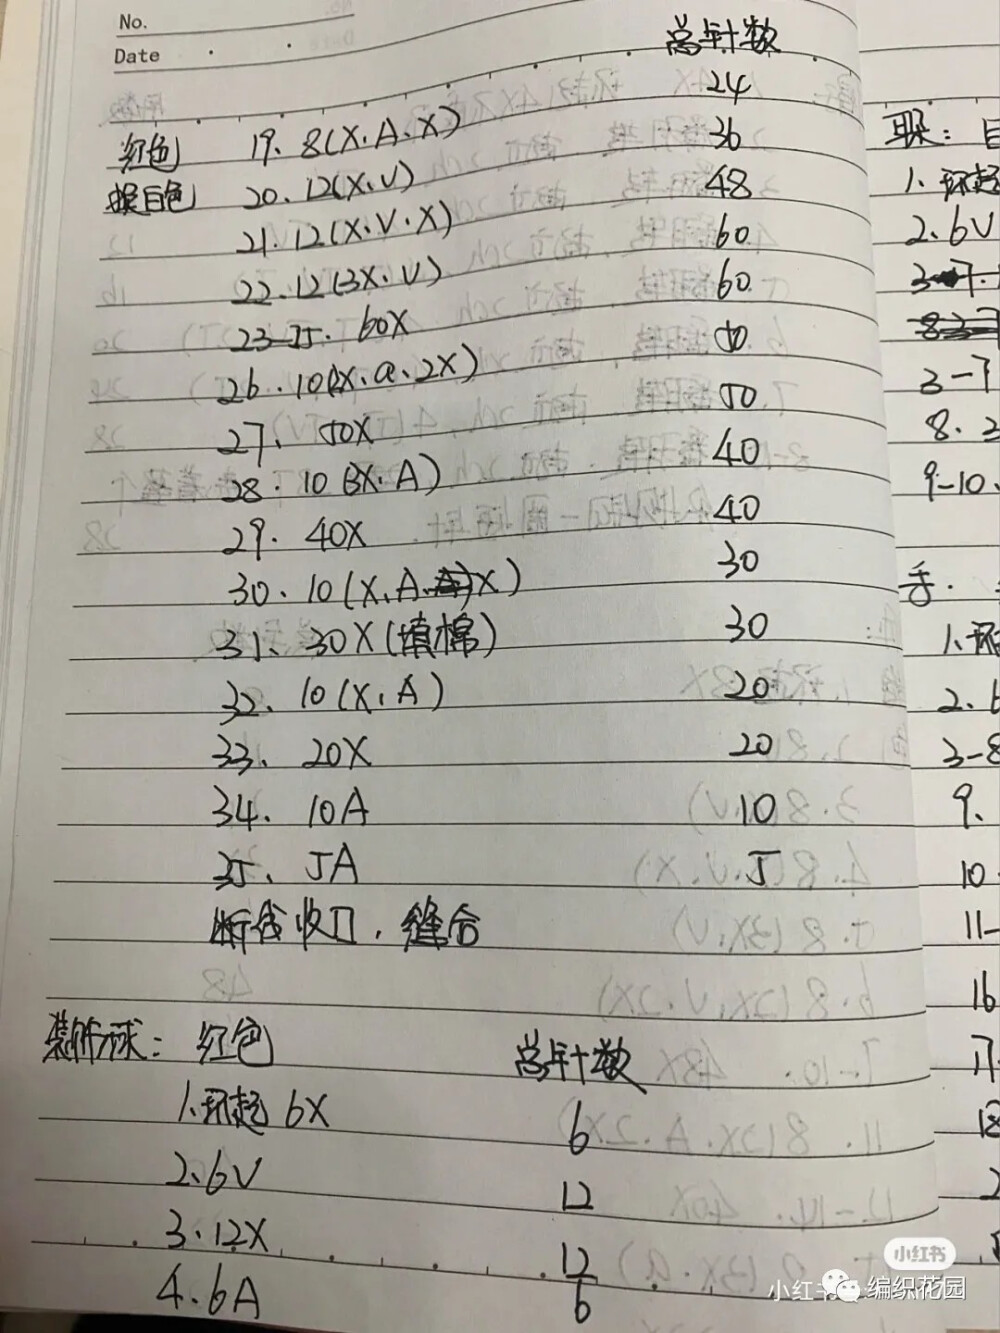 No.
Date
总针数
红色 19. 8(X、A、X) 24
换白色 20. 12(X、V) 36
21. 12(X、V、X) 48
22. 12(3X、V) 60
23-25. 60X 60
26. 10(2X、A、2X) 50
27、 50X 50
28. 10(3X、A) 40
29. 40X 40
30. 10(X、A、X) 30
31、 30X(填棉) 30
32、 10(X、A) 20
33、 20X 20
34. 10A 10
35、 5A 5
断线收口,缝合
装饰球: 红色 总针数
1.环起6X 6
2.6V 12
3.12X 12
4.6A 6
耳朵:
1.环起
2.6V
3-7
8.
9-10.
手.
1.环
2.6
3-8
9.
10
11-
16
小红书
编织花园